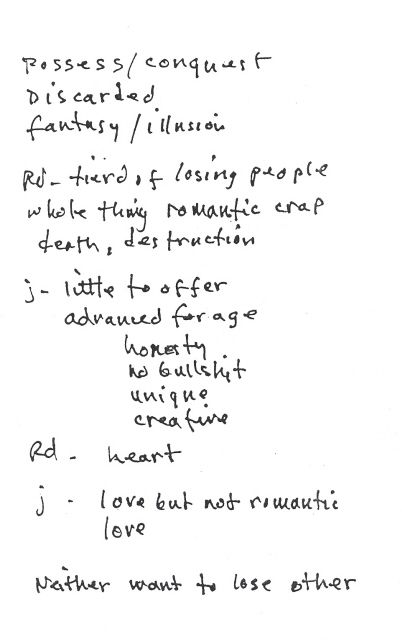 Possess/conquest
Discarded
fantasy/illusion
Rd - tierd of losing people
whole thing romantic crap
death, destruction
j - little to offer
advanced for age
honesty
no bullshit
unique
creative
Rd - heart
j - love but not romantic
love
Neither want to lose other